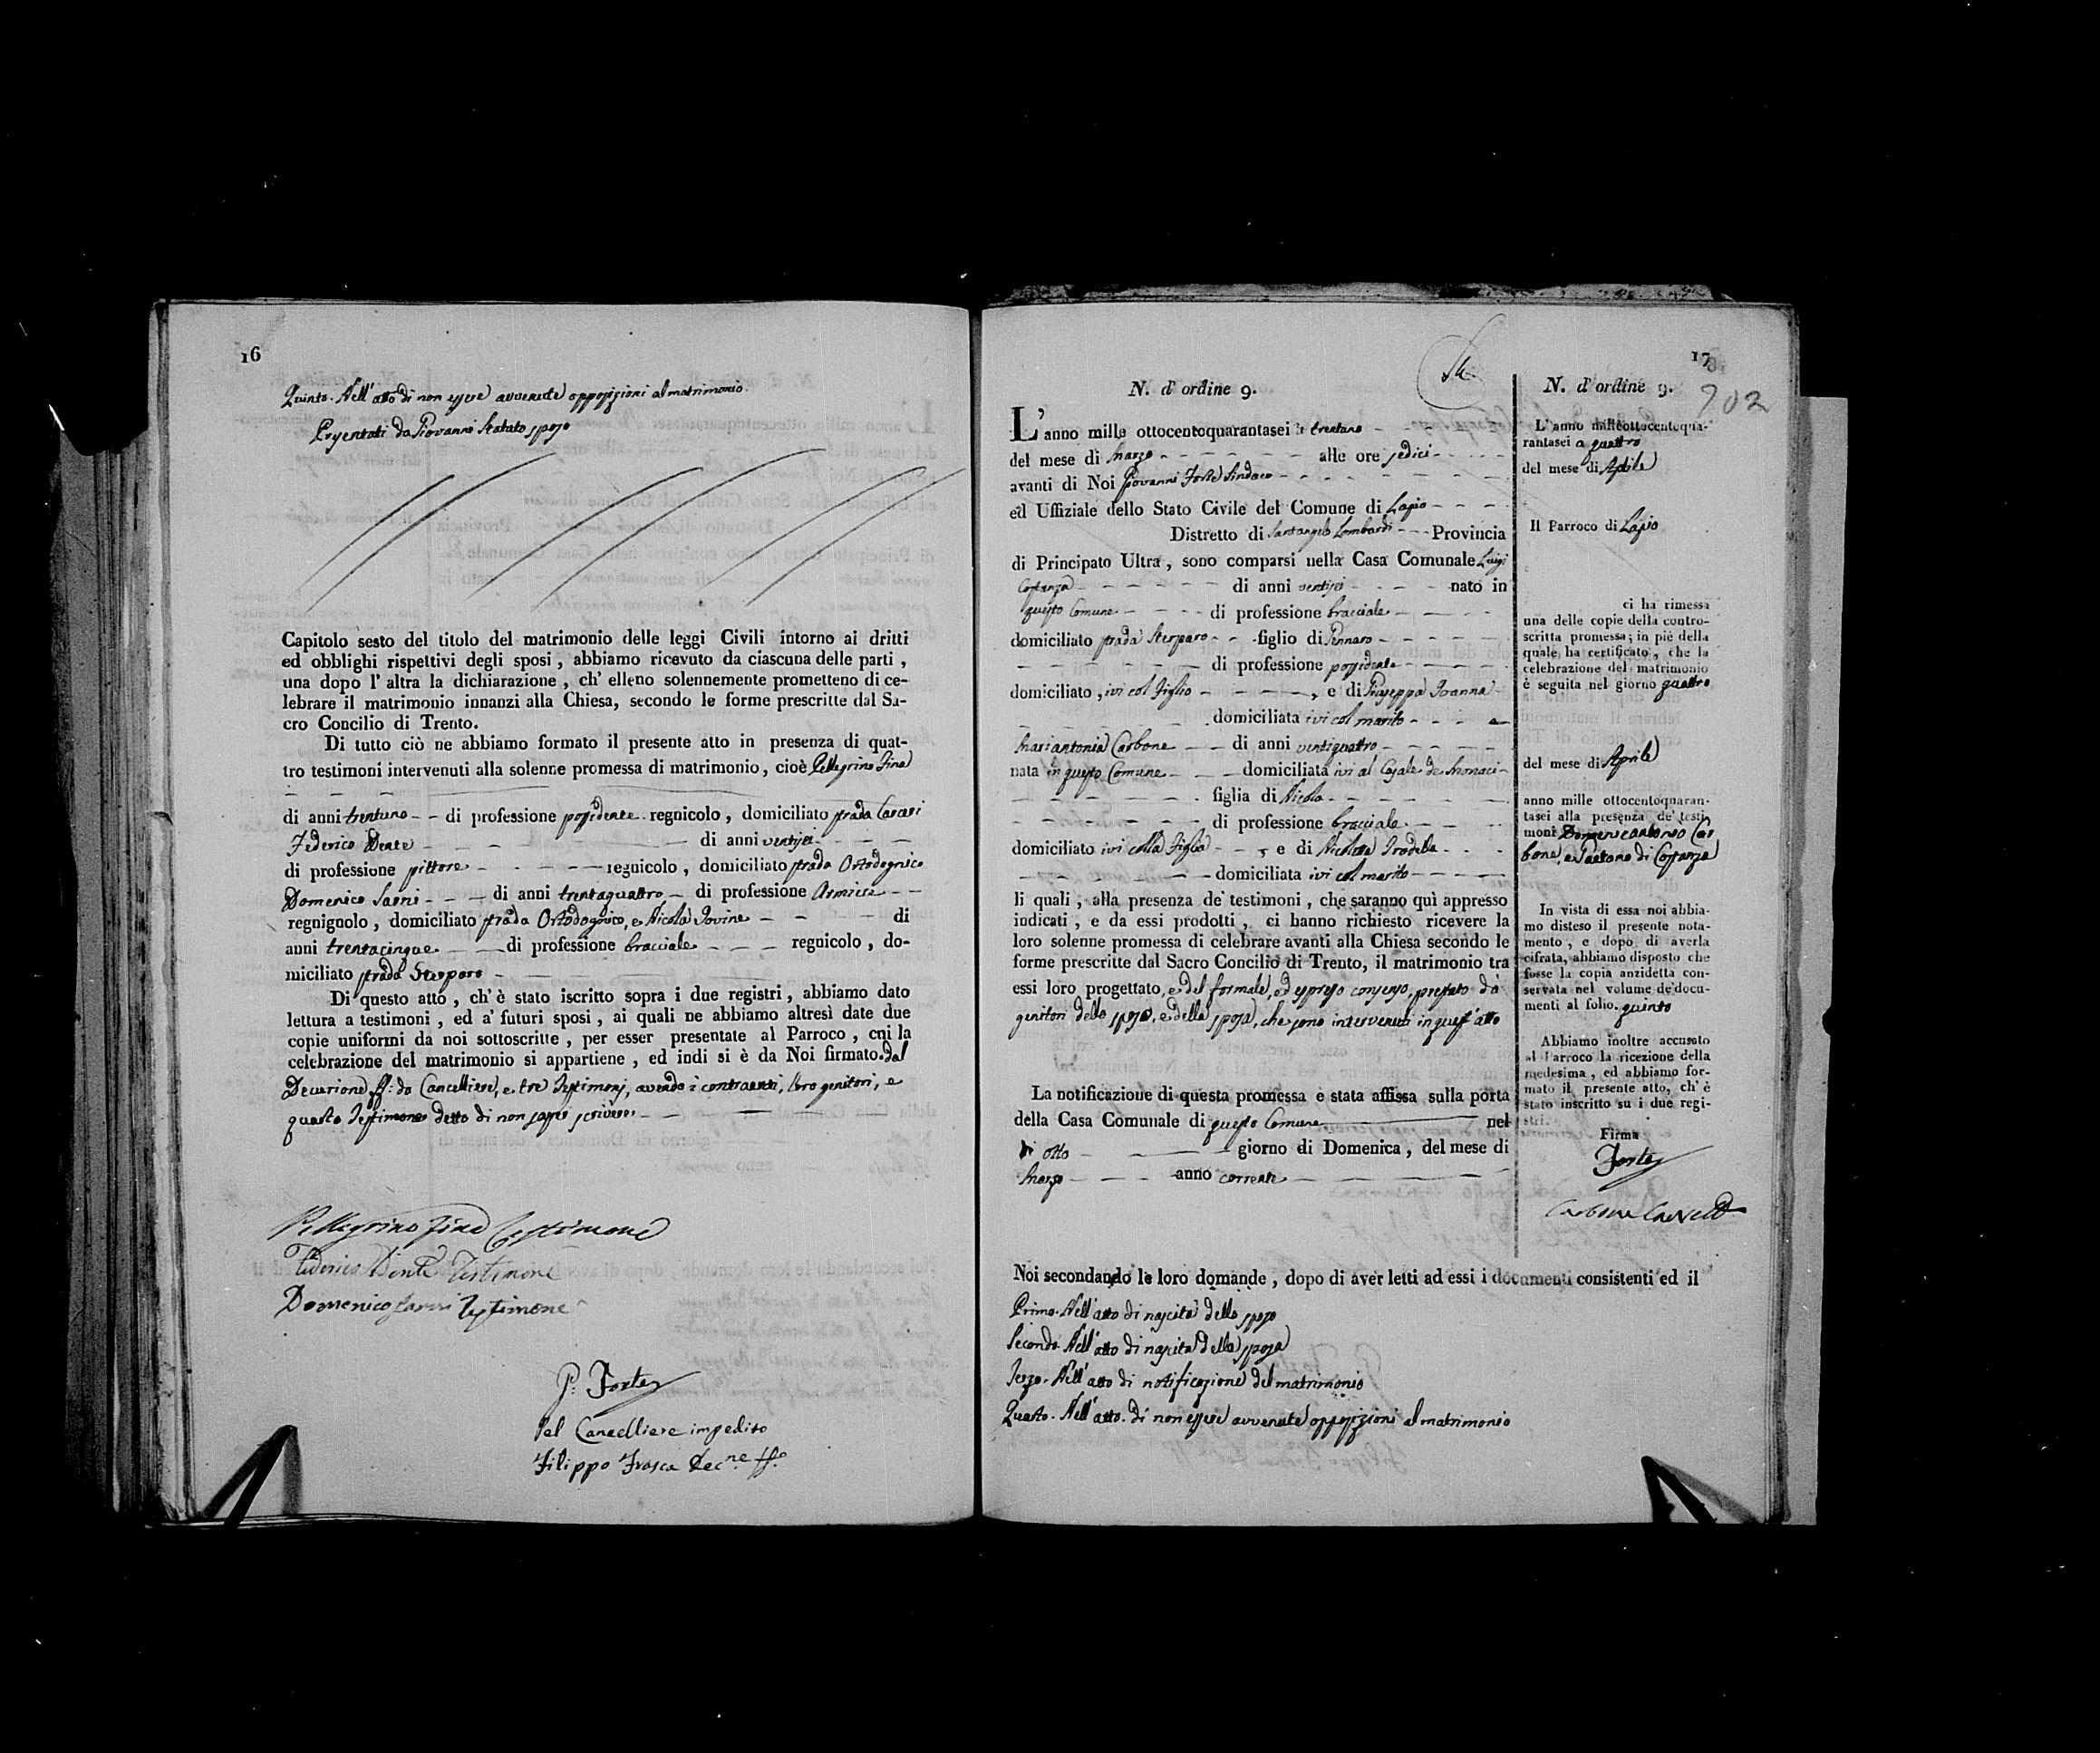 16
Quinto. Nell'atto di non essere avvenute opposizioni al matrimonio
Presentati da Giovanni Statuto sposo
Capitolo sesto del titolo del matrimonio delle leggi Civili intorno ai dritti
ed obblighi rispettivi degli sposi, abbiamo ricevuto da ciascuna delle parti,
una dopo l' altra la dichiarazione, ch' elleno solennemente prometteno di ce-
lebrare il matrimonio innanzi alla Chiesa, secondo le forme prescritte dal Sa-
cro Concilio di Trento.
Di tutto ciò ne abbiamo formato il presente atto in presenza di quat-
tro testimoni intervenuti alla solenne promessa di matrimonio, cioè Pellegrino Fina
di anni trentuno di professione possidente regnicolo, domiciliato strada Carceri
Federico Dente di anni ventisei
di professione pittore regnicolo, domiciliato strada Ortodognico
Domenico di anni trentaquattro di professione Armiere
regnignolo, domiciliato strada Ortodognico, e Nicola Iovine di
anni trentacinque di professione bracciale regnicolo, do-
miciliato strada Sterparo
Di questo atto, ch' è stato iscritto sopra i due registri, abbiamo dato
lettura a testimoni, ed a' futuri sposi, ai quali ne abbiamo altresì date due
copie uniformi da noi sottoscritte, per esser presentate al Parroco, cui la
celebrazione del matrimonio si appartiene, ed indi si è da Noi firmato. dal
Decurione ff: da Cancelliere, e tre Testimonj, avendo i contraenti, loro genitori, e
quarto Testimone detto di non saper scrivere
Pellegrino Fina Testimone
Federico Dente Testimone
Domenico Testimone
G. Forte
Pel Cancelliere impedito
Filippo Frasca Dec.ne ff.
17
902
N. d'ordine 9.
L' anno mille ottocentoquarantasei a trentuno
del mese di Marzo alle ore sedici
avanti di Noi Giovanni Forte Sindaco
ed Uffiziale dello Stato Civile del Comune di Lapio
Distretto di Santangelo Lombardi Provincia
di Principato Ultra, sono comparsi nella Casa Comunale Luigi
Costanza di anni ventisei nato in
questo Comune di professione bracciale
domiciliato strada Sterparo figlio di Gennaro
di professione possidente
domiciliato, ivi col figlio, e di Giuseppa Ioanna
domiciliata ivi col marito e
Mariantonia Carbone di anni ventiquattro
nata in questo Comune domiciliata ivi al Casale de Monaci
figlia di Nicola
di professione bracciale
domiciliato ivi colla figlia, e di Nicoletta
domiciliata ivi col marito
li quali, alla presenza de' testimoni, che saranno quì appresso
indicati, e da essi prodotti, ci hanno richiesto ricevere la
loro solenne promessa di celebrare avanti alla Chiesa secondo le
forme prescritte dal Sacro Concilio di Trento, il matrimonio tra
essi loro progettato, e del formale, ed espresso consenso, prestato da
genitori dello sposo, e della sposa, che sono intervenuti in quest'atto
La notificazione di questa promessa e stata affissa sulla porta
della Casa Comunale di questo Comune nel
dì otto giorno di Domenica, del mese di
Marzo anno corrente
N. d'ordine 9.
L' anno milleottocentoqua-
rantasei a quattro
del mese di Aprile
Il Parroco di Lapio
ci ha rimessa
una delle copie della contro-
scritta promessa; in piè della
quale ha certificato, che la
celebrazione del matrimonio
è seguita nel giorno quattro
del mese di Aprile
anno mille ottocentoquaran-
tasei alla presenza de' testi
moni Domenicantonio Car
bone, e Gaetano di Costanza
In vista di essa noi abbia-
mo disteso il presente nota-
mento, e dopo di averla
cifrata, abbiamo disposto che
fosse la copia anzidetta con-
servata nel volume de' docu-
menti al folio. quinto
Abbiamo inoltre accusato
al Parroco la ricezione della
medesima, ed abbiamo for-
mato il presente atto, ch' è
stato inscritto su i due regi-
stri.
Firma
Forte
Carbone
Noi secondando le loro domande, dopo di aver letti ad essi i documenti consistenti ed il
Primo. Nell'atto di nascita dello sposo
Secondo. Nell'atto di nascita della sposa
Terzo. Nell'atto di notificazione del matrimonio
Quarto. Nell'atto di non essere avvenute opposizioni al matrimonio